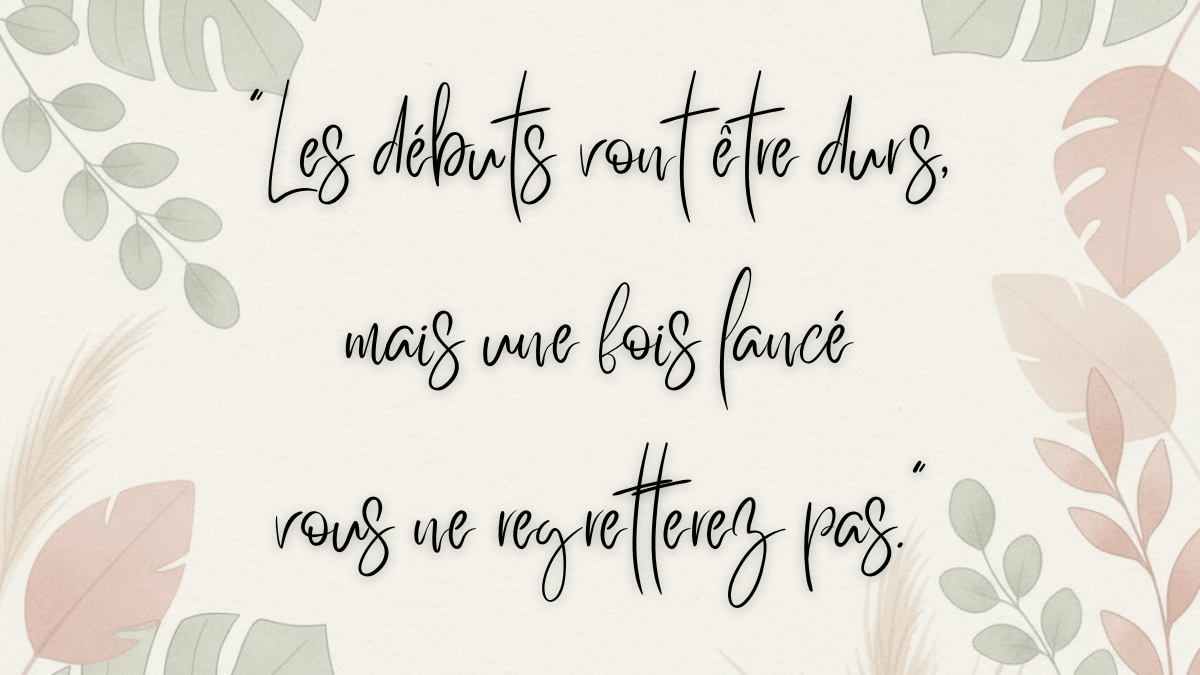 "Les débuts vont être durs,
mais une fois lancé
vous ne regretterez pas."